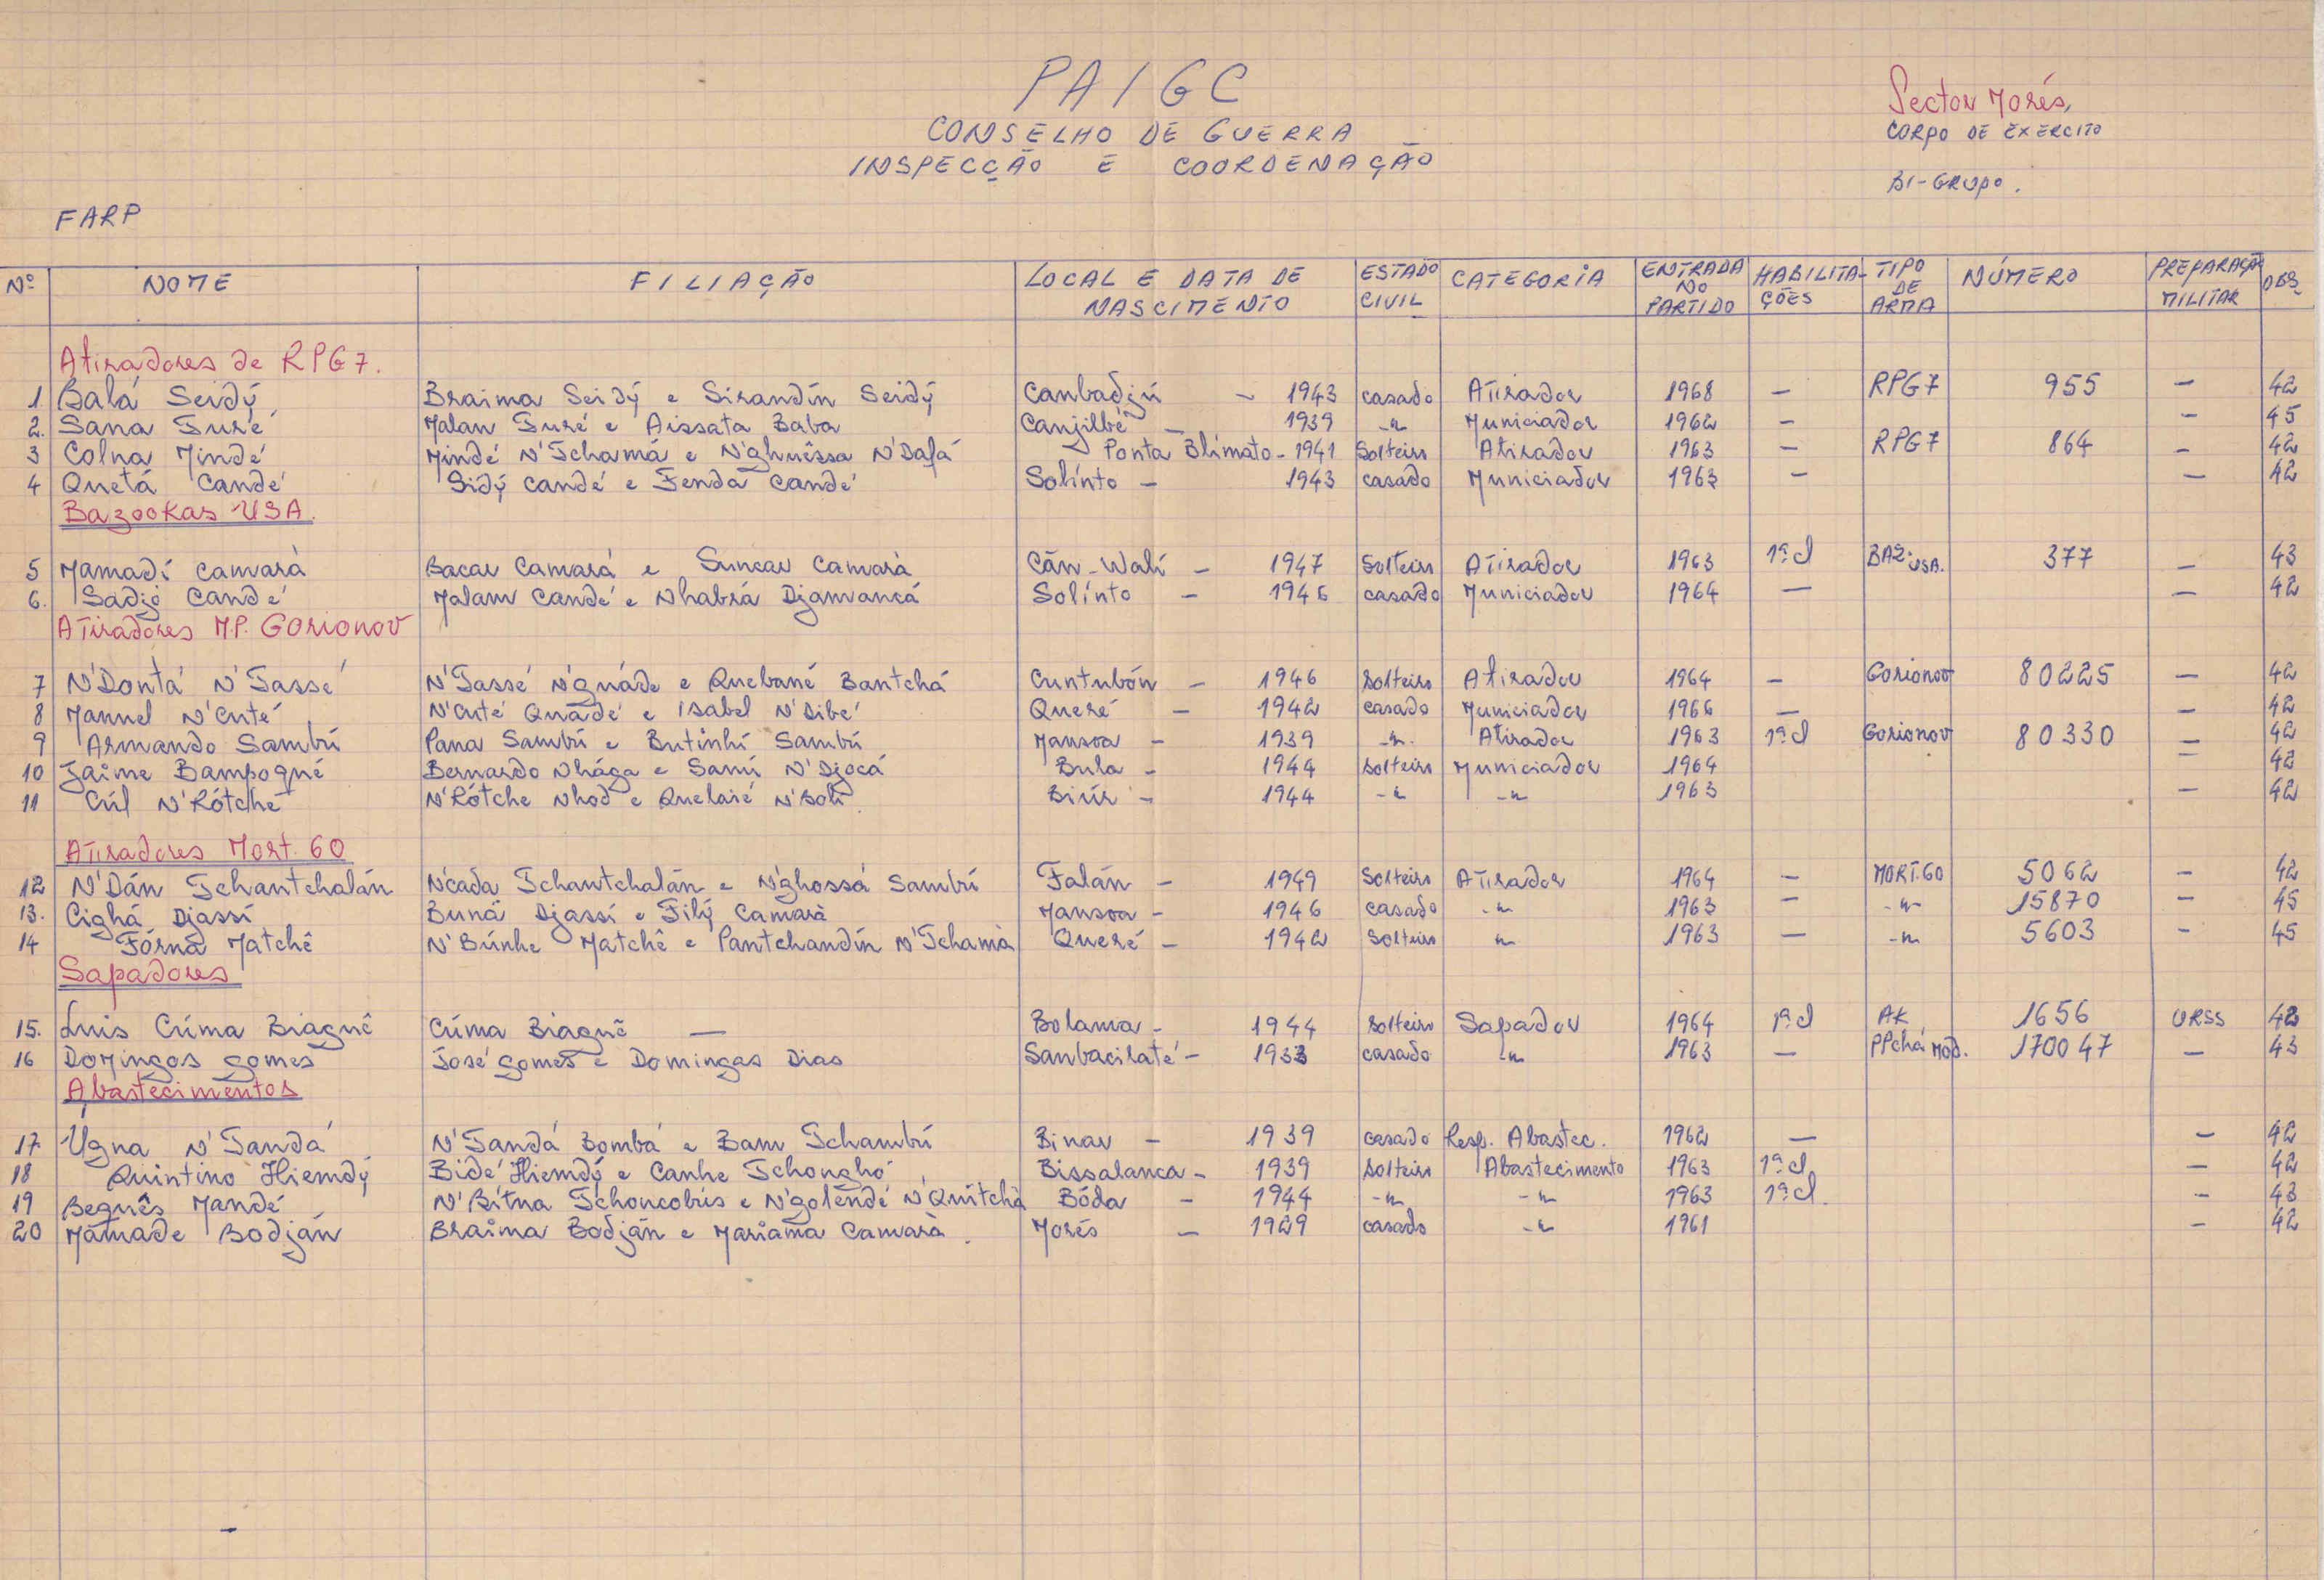 PAIGC
CONSELHO DE GUERRA
INSPECÇÃO E COORDENAÇÃO
Sector Morés,
CORPO DE EXERCITO
BI-GRUPO.
FARP
Nº NOME FILIAÇÃO LOCAL E DATA DE NASCIMENTO ESTADO CIVIL CATEGORIA ENTRADA NO PARTIDO HABILITAÇÕES TIPO DE ARMA NÚMERO PREPARAÇÃO MILITAR OBS.
Atiradores de RPG7.
1 Balá Seidý Braima Seidý e Sirandín Seidý Canbadjú – 1943 casado Atirador 1968 – RPG7 955 – 42
2. Sana Turé Malan Turé e Aissata Baba Canjilbé – 1939 -"- Municiador 1962 – – 45
3 Colna Mindé Mindé N'Tchamá e N'ghuêssa N'Dafá Ponta Blimato - 1941 Solteiro Atirador 1963 – RPG7 864 – 42
4 Quetá Candé Sidý Candé e Fenda Candé Solínto – 1943 casado Municiador 1963 – – 42
Bazookas USA.
5 Mamadí Camarà Bacar Camará e Suncar Camarà Cãn-Walí – 1947 Solteiro Atirador 1963 1ª cl BAZ. USA. 377 – 43
6. Sadjó Candé Malam Candé e Nhabrá Djamancá Solínto – 1946 casado Municiador 1964 – – 42
Atiradores M.P. Gorionov
7 N'Dontá N'Tassé N'Tassé N'guáde e Quebané Bantchá Cuntubón – 1946 solteiro Atirador 1964 – Gorionov 80225 – 42
8 Manuel N'Cuté N'Cuté Quádé e Isabel N'Dibé Queré – 1942 casado Municiador 1966 – – 42
9 Armando Sambú Pana Sambú e Butinhí Sambú Mansoa – 1939 -"- Atirador 1963 1ª cl Gorionov 80330 – 42
10 Jaime Bampoqné Bernardo Nhága e Samí N'Djocá Bula – 1944 solteiro Municiador 1964 – 42
11 Cúl N'Rótche N'Rótche Nhod e Quelaié N'Boli Biúr – 1944 -"- -"- 1963 – 42
Atiradores Mort. 60
12 N'Dán Tchantchalán N'cada Tchantchalán e N'ghossá Sambú Falán – 1949 Solteiro Atirador 1964 – MORT.60 5062 – 42
13. Cighá Djassí Buná Djassí e Filý Camarà Mansoa – 1946 casado -"- 1963 – -"- 15870 – 45
14 Fórna Matchê N'Búnhe Matchê e Pantchandín N'Tchamà Queré – 1942 Solteiro " 1963 – -"- 5603 – 45
Sapadores
15. Luis Cúma Biaguê Cúma Biaguê – Bolama - 1944 solteiro Sapador 1964 1ª cl AK 1656 URSS 42
16 Domingos gomes José gomes e Domingas Dias Sanbacilaté – 1933 casado -"- 1963 – PPchá MOD. 170047 – 43
Abastecimentos
17 Ugna N'Tandá N'Tandá Bombá e Bam Tchambú Binar – 1939 casado Resp. Abastec. 1962 – – 42
18 Quintino Hiemdý Bidé Hiemdý e Canhe Tchonghó Bissalanca - 1939 solteiro Abastecimento 1963 1ª cl. – 42
19 Beguês Mandé N'Bítna Tchoncobús e N'golendé N'Quitchà Bóda – 1944 -"- -"- 1963 1ª cl. – 43
20 Mamade Bodján Braima Bodján e Mariama Camarà. Morés – 1929 casado -"- 1961 – 42